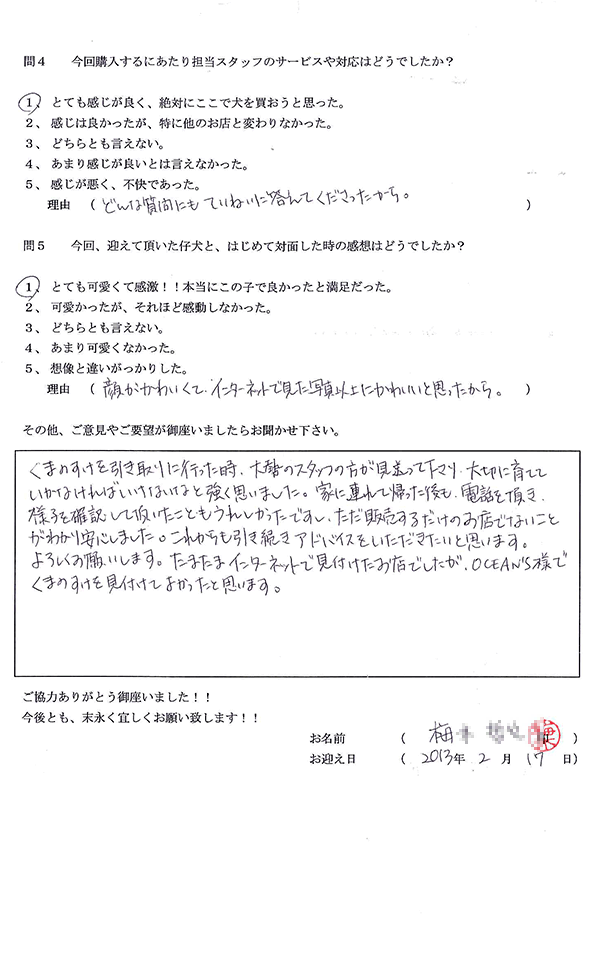 問４　今回購入するにあたり担当スタッフのサービスや対応はどうでしたか？
１、とても感じが良く、絶対にここで犬を買おうと思った。
２、感じは良かったが、特に他のお店と変わりなかった。
３、どちらとも言えない。
４、あまり感じが良いとは言えなかった。
５、感じが悪く、不快であった。
理由　（ どんな質問にもていねいに答えてくださったから。　）
問５　今回、迎えて頂いた仔犬と、はじめて対面した時の感想はどうでしたか？
１、とても可愛くて感激！！本当にこの子で良かったと満足だった。
２、可愛かったが、それほど感動しなかった。
３、どちらとも言えない。
４、あまり可愛くなかった。
５、想像と違いがっかりした。
理由　（ 顔がかわいくて、インターネットで見た写真以上にかわいいと思ったから。　）
その他、ご意見やご要望が御座いましたらお聞かせ下さい。
くまのすけを引き取りに行った時、大勢のスタッフの方が見送って下さり、大切に育てて
いかなければいけないなと強く思いました。家に連れて帰った後も、電話を頂き、
様子を確認して頂いたこともうれしかったですし、ただ販売するだけのお店でないこと
がわかり安心しました。これからも引き続きアドバイスをいただきたいと思います。
よろしくお願いします。たまたまインターネットで見付けたお店でしたが、OCEAN'S様で
くまのすけを見付けてよかったと思います。
ご協力ありがとう御座いました！！
今後とも、末永く宜しくお願い致します！！
お名前　（　梅　）
お迎え日　（　2013年　2　月　17　日）